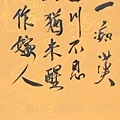 一痴漢
川不息
猶未醒
作嫁人